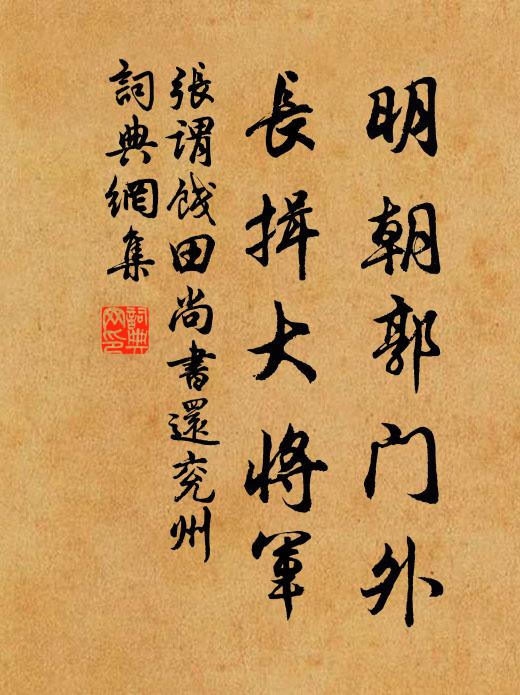 明朝郭门外
長揖大將軍
張謂餞田尚書還兖州
詞典網集
詞典網印